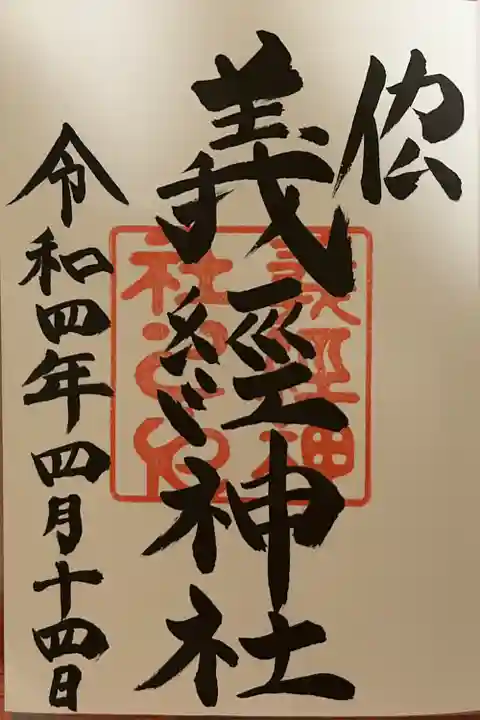 義經神社
令和四年四月十四日
義經神
社之印